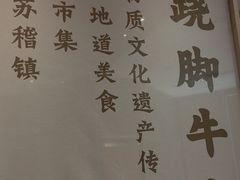 跷脚牛
质文化遗产传
地道美食
市集
苏稽镇